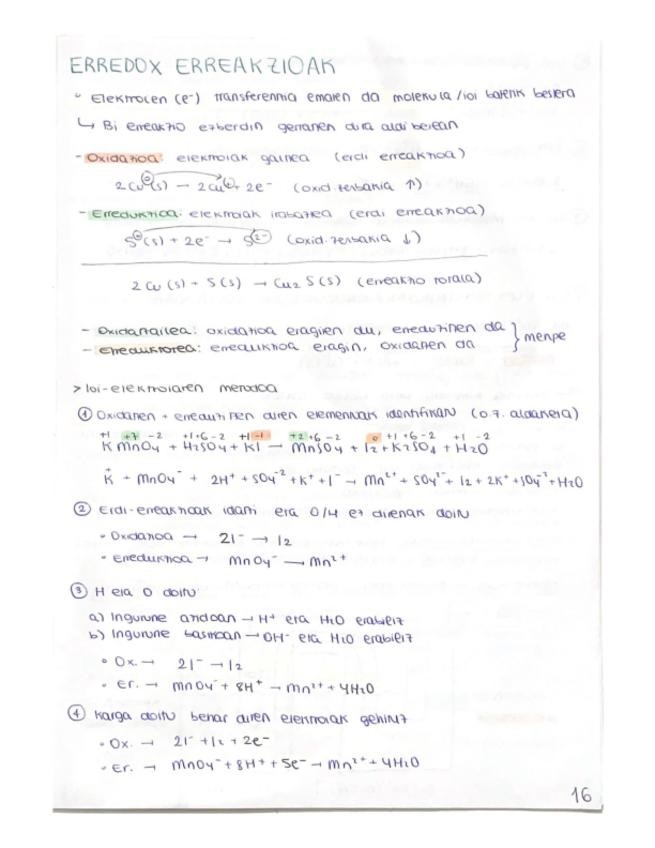 ERREDOX ERREAKZIOAK
• Elektroien (e⁻) transferentzia ematen da molekula/ioi batetik bestera
↳ Bi erreakzio ezberdin gertatzen dira aldi berean
- Oxidazioa: elektroiak galtzea (erdi erreakzioa)
2Cu⁰(s) → 2Cu⁺ + 2e⁻ (oxid. zenbakia ↑)
- Erredukzioa: elektroiak irabaztea (erdi erreakzioa)
S⁰(s) + 2e⁻ → S²⁻ (oxid. zenbakia ↓)
2 Cu (s) + S (s) → Cu₂ S (s) (erreakzio totala)
- Oxidatzailea: oxidazioa eragiten du, erreduzitzen da } menpe
- Erreduktorea: erredukzioa eragin, oxidatzen da
> Ioi-elektroiaren metodoa
① Oxidatzen + erreduzitzen diren elementuak identifikatu (o.z. aldaketa)
+1 +7 -2 +1 +6 -2 +1 -1 +2 +6 -2 0 +1 +6 -2 +1 -2
K MnO₄ + H₂SO₄ + KI → MnSO₄ + I₂ + K₂SO₄ + H₂O
K⁺ + MnO₄⁻ + 2H⁺ + SO₄⁻² + K⁺ + I⁻ → Mn²⁺ + SO₄²⁻ + I₂ + 2K⁺ + SO₄⁻² + H₂O
② Erdi-erreakzioak idatzi eta O/H ez direnak doitu
• Oxidazioa → 2I⁻ → I₂
• Erredukzioa → MnO₄⁻ → Mn²⁺
③ H eta O doitu
a) Ingurune azidoan → H⁺ eta H₂O erabiliz
b) Ingurune basikoan → OH⁻ eta H₂O erabiliz
• Ox. → 2I⁻ → I₂
• Er. → MnO₄⁻ + 8H⁺ → Mn²⁺ + 4H₂O
④ Karga doitu behar diren elektroiak gehituz
• Ox. → 2I⁻ → I₂ + 2e⁻
• Er. → MnO₄⁻ + 8H⁺ + 5e⁻ → Mn²⁺ + 4H₂O
16